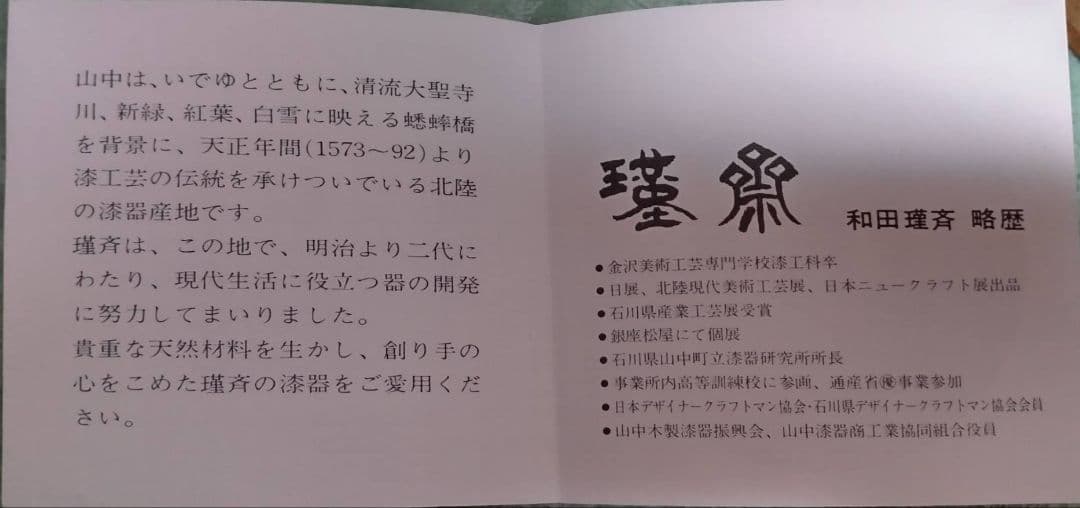 山中は、いでゆとともに、清流大聖寺
川、新緑、紅葉、白雪に映える蟋蟀橋
を背景に、天正年間(1573〜92)より
漆工芸の伝統を承けついでいる北陸
の漆器産地です。
瑾斉は、この地で、明治より二代に
わたり、現代生活に役立つ器の開発
に努力してまいりました。
貴重な天然材料を生かし、創り手の
心をこめた瑾斉の漆器をご愛用くだ
さい。
瑾斎
和田瑾斉 略歴
●金沢美術工芸専門学校漆工科卒
●日展、北陸現代美術工芸展、日本ニュークラフト展出品
●石川県産業工芸展受賞
●銀座松屋にて個展
●石川県山中町立漆器研究所所長
●事業所内高等訓練校に参画、通産省事業参加
●日本デザイナークラフトマン協会・石川県デザイナークラフトマン協会会員
●山中木製漆器振興会、山中漆器商工業協同組合役員